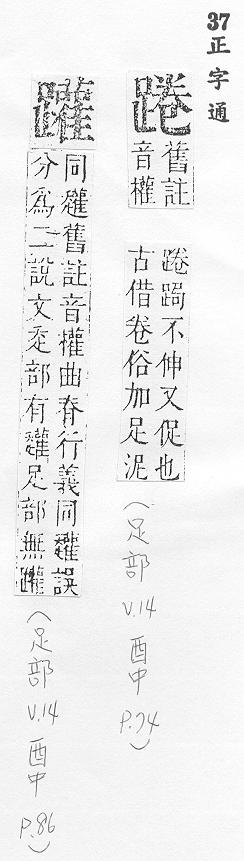 37 正字通
踡
舊註
音權
踡跼不伸又促也
古借卷俗加足泥
(足部 V.14 酉中 P.74)
同𧾯舊註音權曲脊行義同𧾯誤
分爲二說文走部有𧾯足部無
(足部 V.14 酉中 P.86)